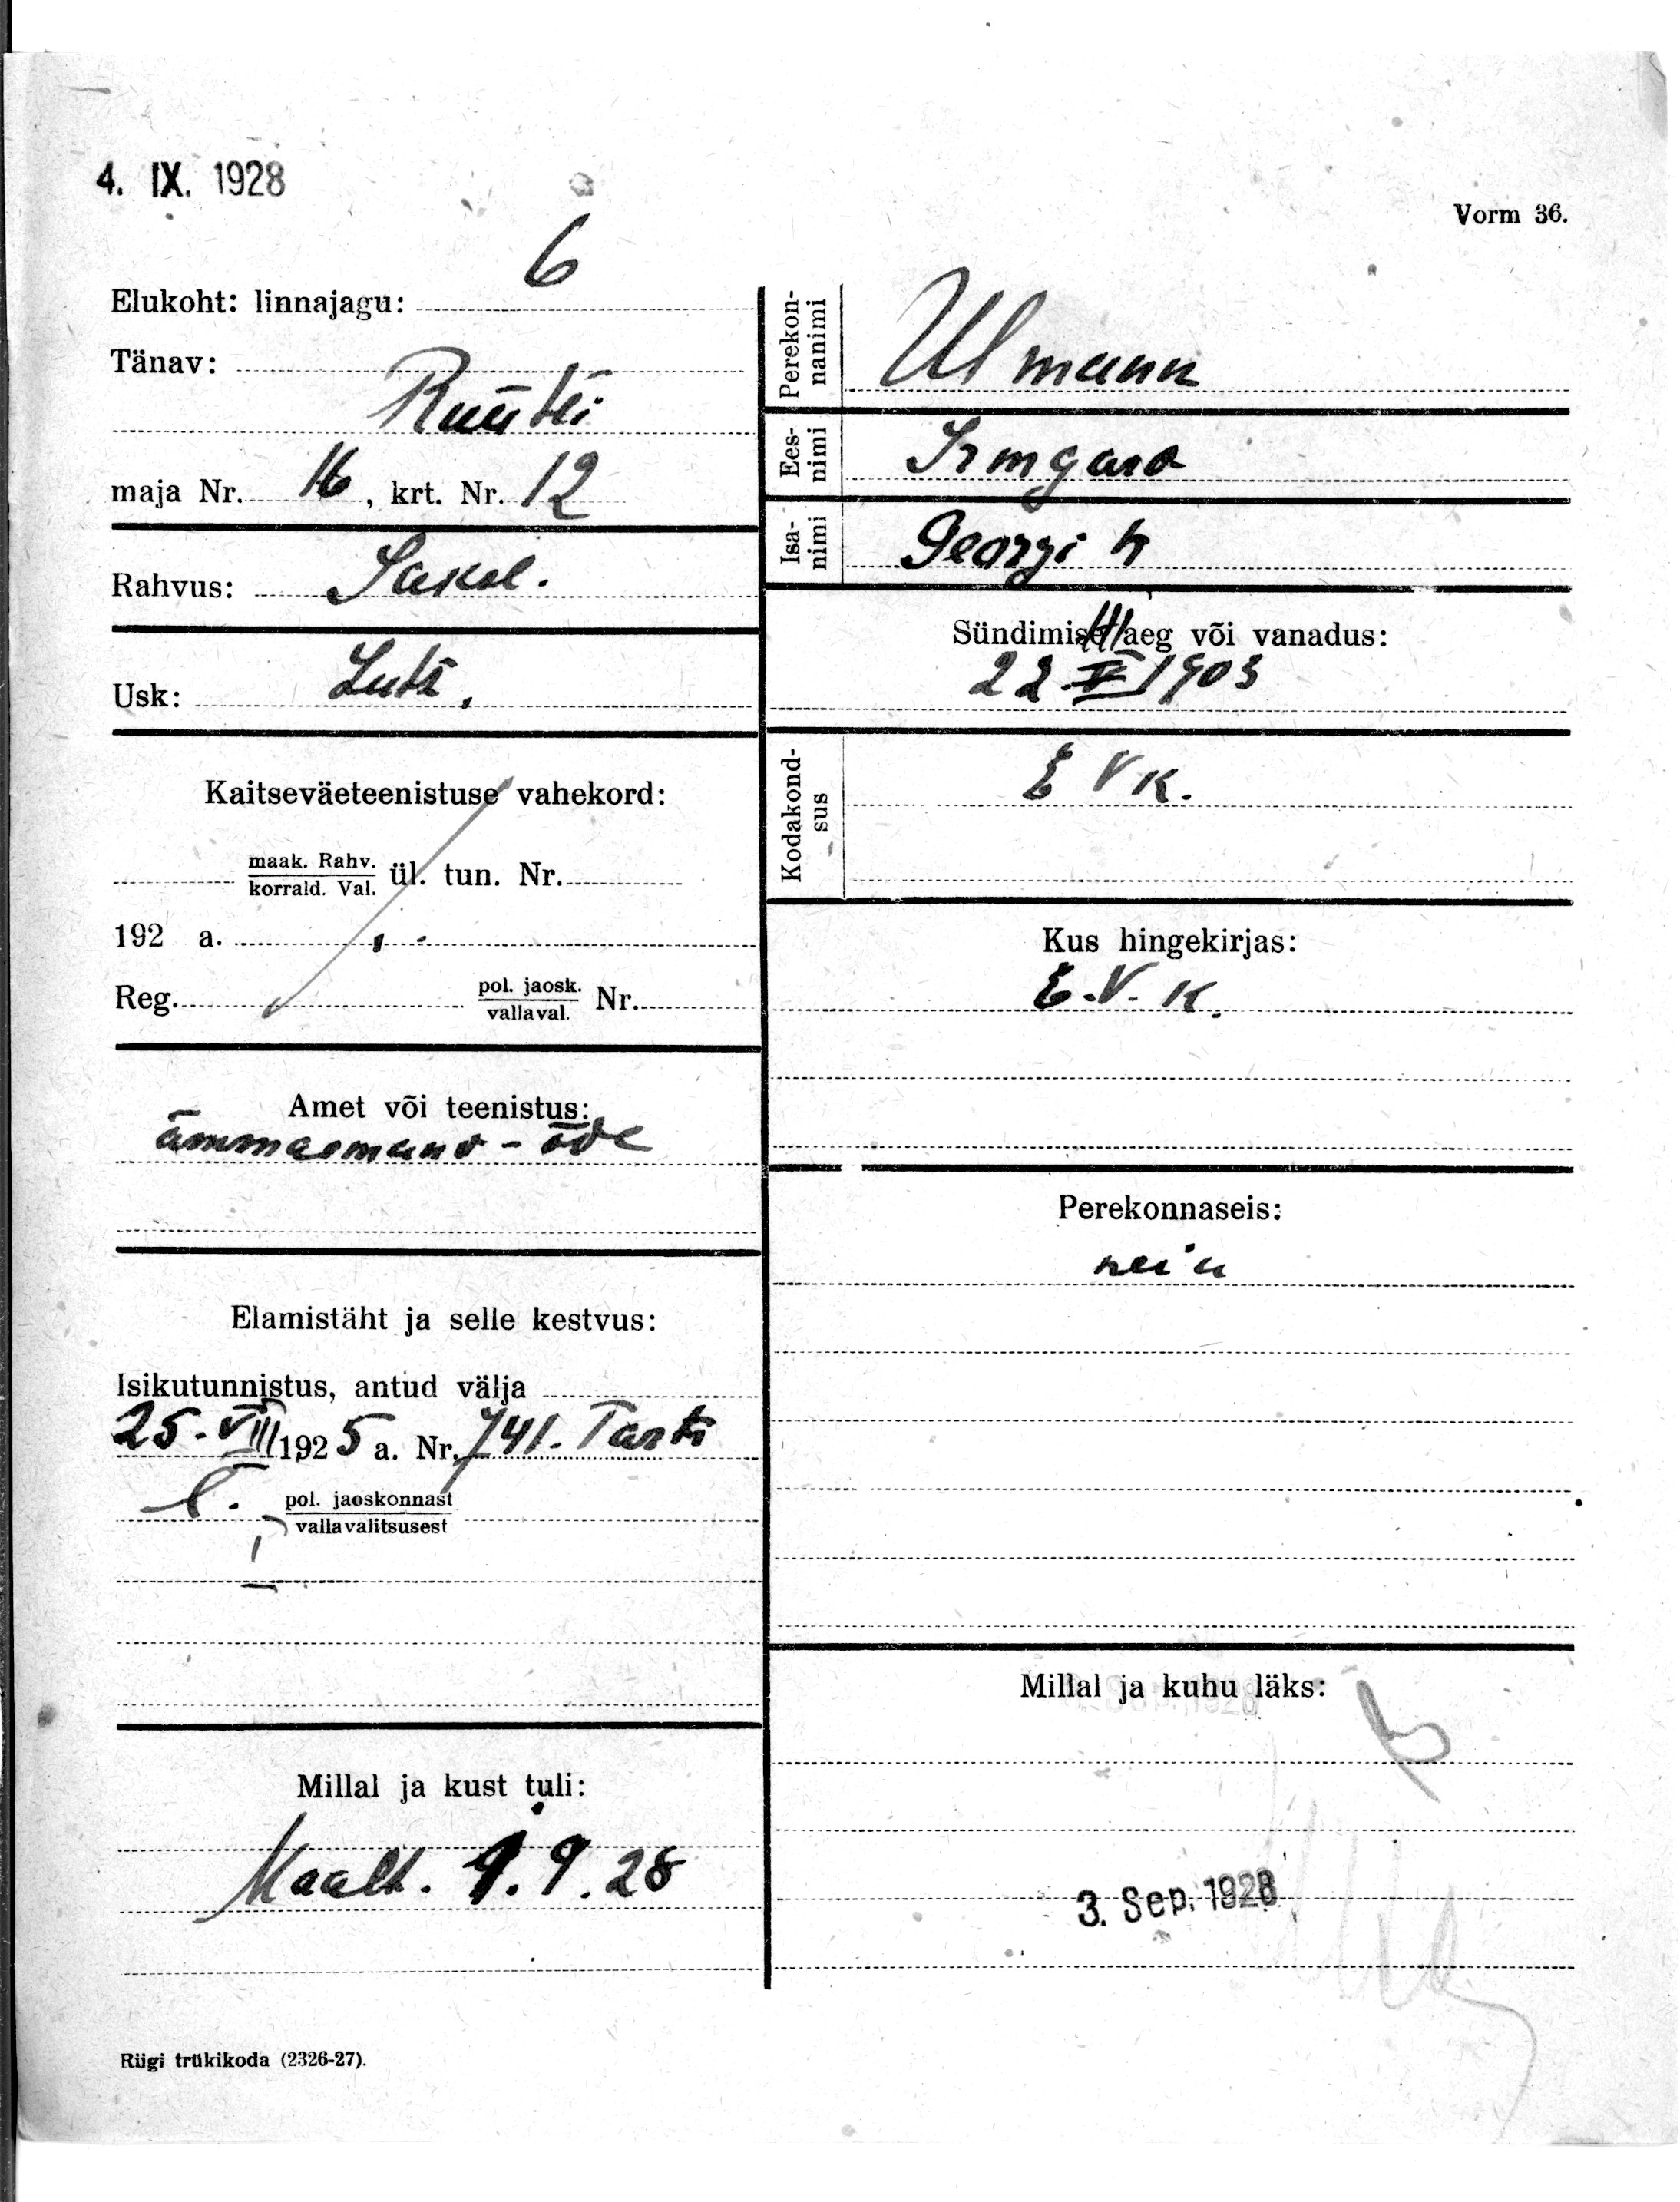 4. IX. 1928
Vorm 36.
Elukoht: linnajagu: 6
Tänav:
Rüütli
maja Nr. 16, krt. Nr. 12
Rahvus: Saksl.
Usk: Lutr.
Kaitseväeteenistuse vahekord:
maak. Rahv.
korrald. Val. ül. tun. Nr.
192 a.
Reg. pol. jaosk.
vallaval. Nr.
Amet või teenistus:
ämmaemand - õde
Elamistäht ja selle kestvus:
Isikutunnistus, antud välja
25. VIII 1925 a. Nr. 741. Tartu
pol. jaoskonnast
vallavalitsusest
I
Millal ja kust tuli:
Maalt. 1.9.28
Perekon-
nanimi
Ulmann
Ees-
nimi
Irmgard
Isa-
nimi
Georgi t.
Sündimise aeg või vanadus:
III
22. V 1903
Kodakond-
sus
E V K.
Kus hingekirjas:
E.V.K.
Perekonnaseis:
neiu
Millal ja kuhu läks:
3. Sep. 1928
Riigi trükikoda (2326-27).